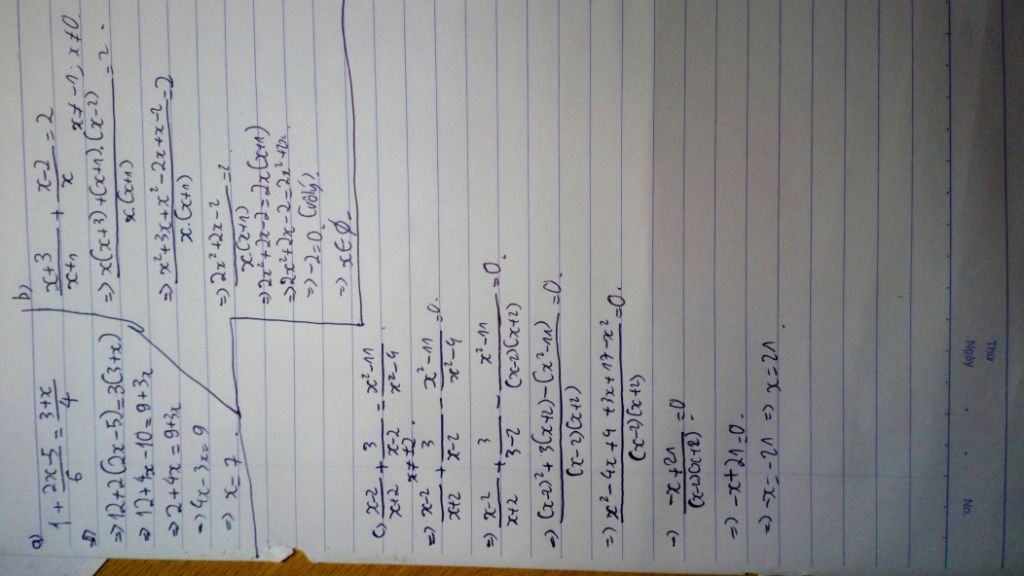 a)
1 + 2x-5/6 = 3+x/4
=> 12+2(2x-5) = 3(3+x)
=> 12+4x-10 = 9+3x
=> 2+4x = 9+3x
=> 4x-3x = 9
=> x = 7
b)
x+3/x+1 + x-2/x = 2
x ≠ -1; x ≠ 0
=> x(x+3)+(x+1).(x-2)/x(x+1) = 2
=> x²+3x+x²-2x+x-2/x.(x+1) = 2
=> 2x²+2x-2/x(x+1) = 2
=> 2x²+2x-2 = 2x(x+1)
=> 2x²+2x-2 = 2x²+2x
=> -2 = 0 (vô lý)
=> x ∈ ∅
c) x-2/x+2 + 3/x-2 = x²-11/x²-4
x ≠ ±2
=> x-2/x+2 + 3/x-2 - x²-11/x²-4 = 0.
=> x-2/x+2 + 3/3-2 - x²-11/(x-2)(x+2) = 0.
=> (x-2)²+3(x+2)-(x²-11)/(x-2)(x+2) = 0.
=> x²-4x+4+3x+17-x²/(x-2)(x+2) = 0.
=> -x+21/(x-2)(x+2) = 0
=> -x+21 = 0.
=> -x = -21 => x = 21
Thứ
Ngày
No.